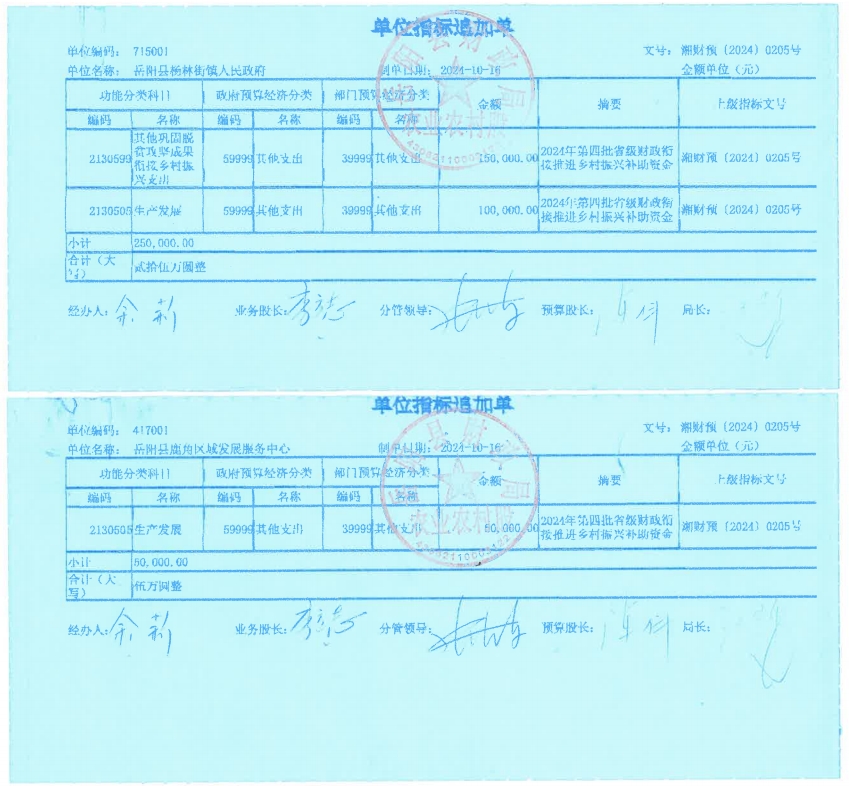 单位指标追加单
单位编码： 715001 文号： 湘财预〔2024〕0205号
单位名称： 岳阳县杨林街镇人民政府 制单日期： 2024-10-16 金额单位（元）
功能分类科目 政府预算经济分类 部门预算经济分类 金额 摘要 上级指标文号
编码 名称 编码 名称 编码 名称
2130599 其他巩固脱贫攻坚成果衔接乡村振兴支出 59999 其他支出 39999 其他支出 150,000.00 2024年第四批省级财政衔接推进乡村振兴补助资金 湘财预〔2024〕0205号
2130505 生产发展 59999 其他支出 39999 其他支出 100,000.00 2024年第四批省级财政衔接推进乡村振兴补助资金 湘财预〔2024〕0205号
小计 250,000.00
合计（大写） 贰拾伍万圆整
经办人： 余莉 业务股长： 分管领导： 预算股长： 局长：
岳阳县财政局
农业农村股
单位指标追加单
单位编码： 417001 文号： 湘财预〔2024〕0205号
单位名称： 岳阳县鹿角区域发展服务中心 制单日期： 2024-10-16 金额单位（元）
功能分类科目 政府预算经济分类 部门预算经济分类 金额 摘要 上级指标文号
编码 名称 编码 名称 编码 名称
2130505 生产发展 59999 其他支出 39999 其他支出 50,000.00 2024年第四批省级财政衔接推进乡村振兴补助资金 湘财预〔2024〕0205号
小计 50,000.00
合计（大写） 伍万圆整
经办人： 余莉 业务股长： 分管领导： 预算股长： 局长：
岳阳县财政局
农业农村股